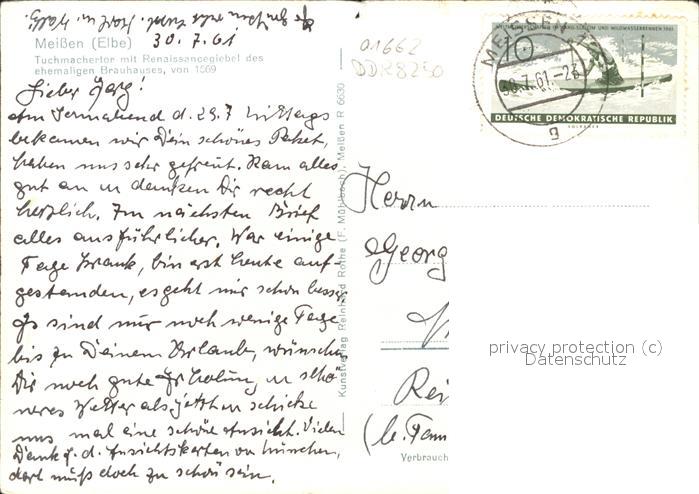 30.7.61
Meißen (Elbe)
Tuchmachertor mit Renaissancegiebel des
ehemaligen Brauhauses, von 1569
Lieber Georg!
Am Sonnabend d. 29.7 Mittags
bekamen wir Dein schönes Paket,
haben uns sehr gefreut. Kam alles
gut an u danken Dir recht
herzlich. Im nächsten Brief
alles ausführlicher. War einige
Tage krank, bin erst heute auf-
gestanden, es geht mir schon besser
Es sind nur noch wenige Tage
bis zu Deinem Urlaube, wünsche
Dir noch gute Erholung u schö
neres Wetter als jetzt u schicke
uns mal eine schöne Ansicht. Vielen
Dank f. d. Ansichtskarten von München,
dort muß doch zu schön sein.
Kunstverlag Reinhard Rothe (F. Mühlbach), Meißen R 6630
01662
DDR8250
MEISSEN
30.7.61.-23
g
10
WILDWASSERRENNEN 1961
DEUTSCHE DEMOKRATISCHE REPUBLIK
Herrn
Georg
Rei
(b. Fam
Verbrauch
privacy protection (c)
Datenschutz